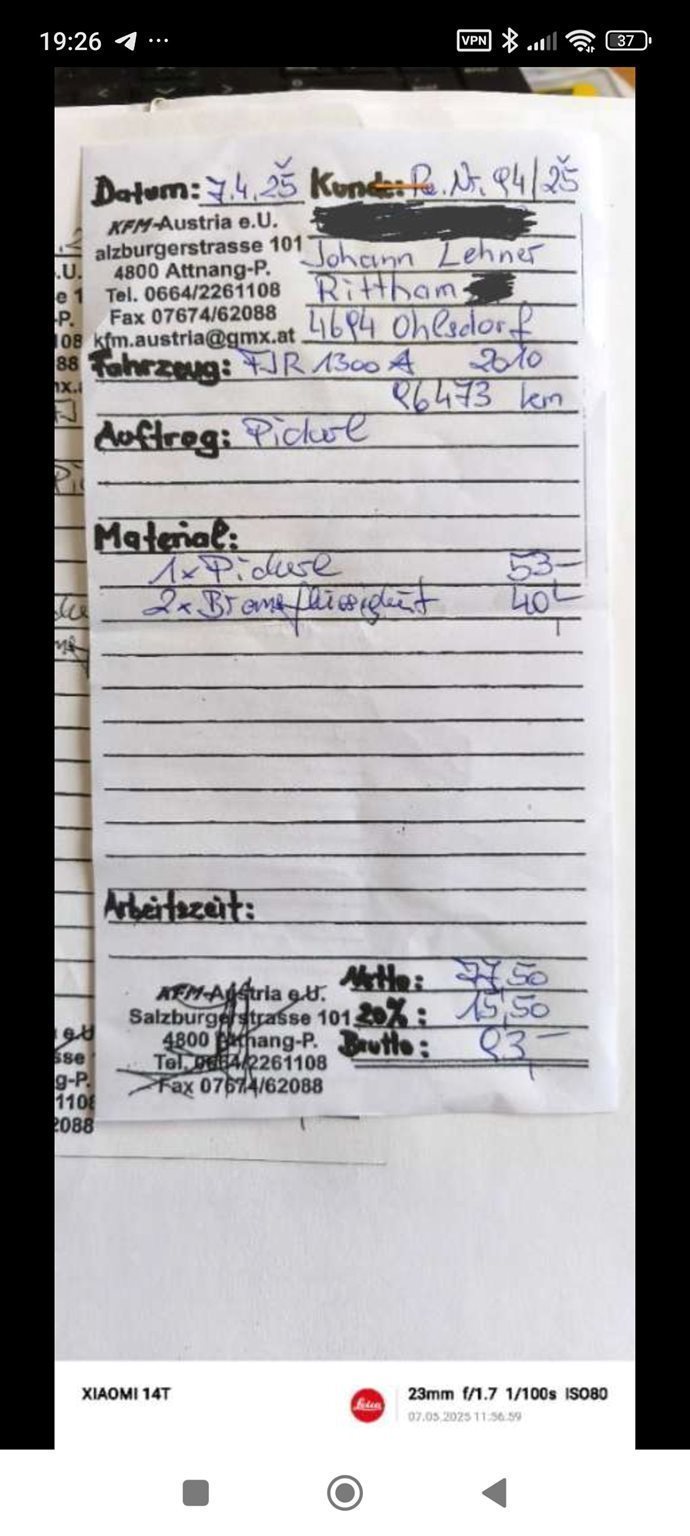 19:26 VPN 37
Datum: 7.4.25 Kunde: Re. Nr. 94/25
KFM-Austria e.U.
alzburgerstrasse 101 Johann Lehner
4800 Attnang-P.
Tel. 0664/2261108 Rittham
Fax 07674/62088
kfm.austria@gmx.at 4694 Ohlsdorf
Fahrzeug: FJR 1300 A 2010
96473 km
Auftrag: Pickerl
Material:
1x Pickerl 53-
2x Bremsflüssigkeit 40-
Arbeitszeit:
KFM-Austria e.U. Netto: 77,50
Salzburgerstrasse 101 20%: 15,50
4800 Attnang-P. Brutto: 93-
Tel. 0664/2261108
Fax 07674/62088
XIAOMI 14T
Leica
23mm f/1.7 1/100s ISO80
07.05.2025 11:56:59